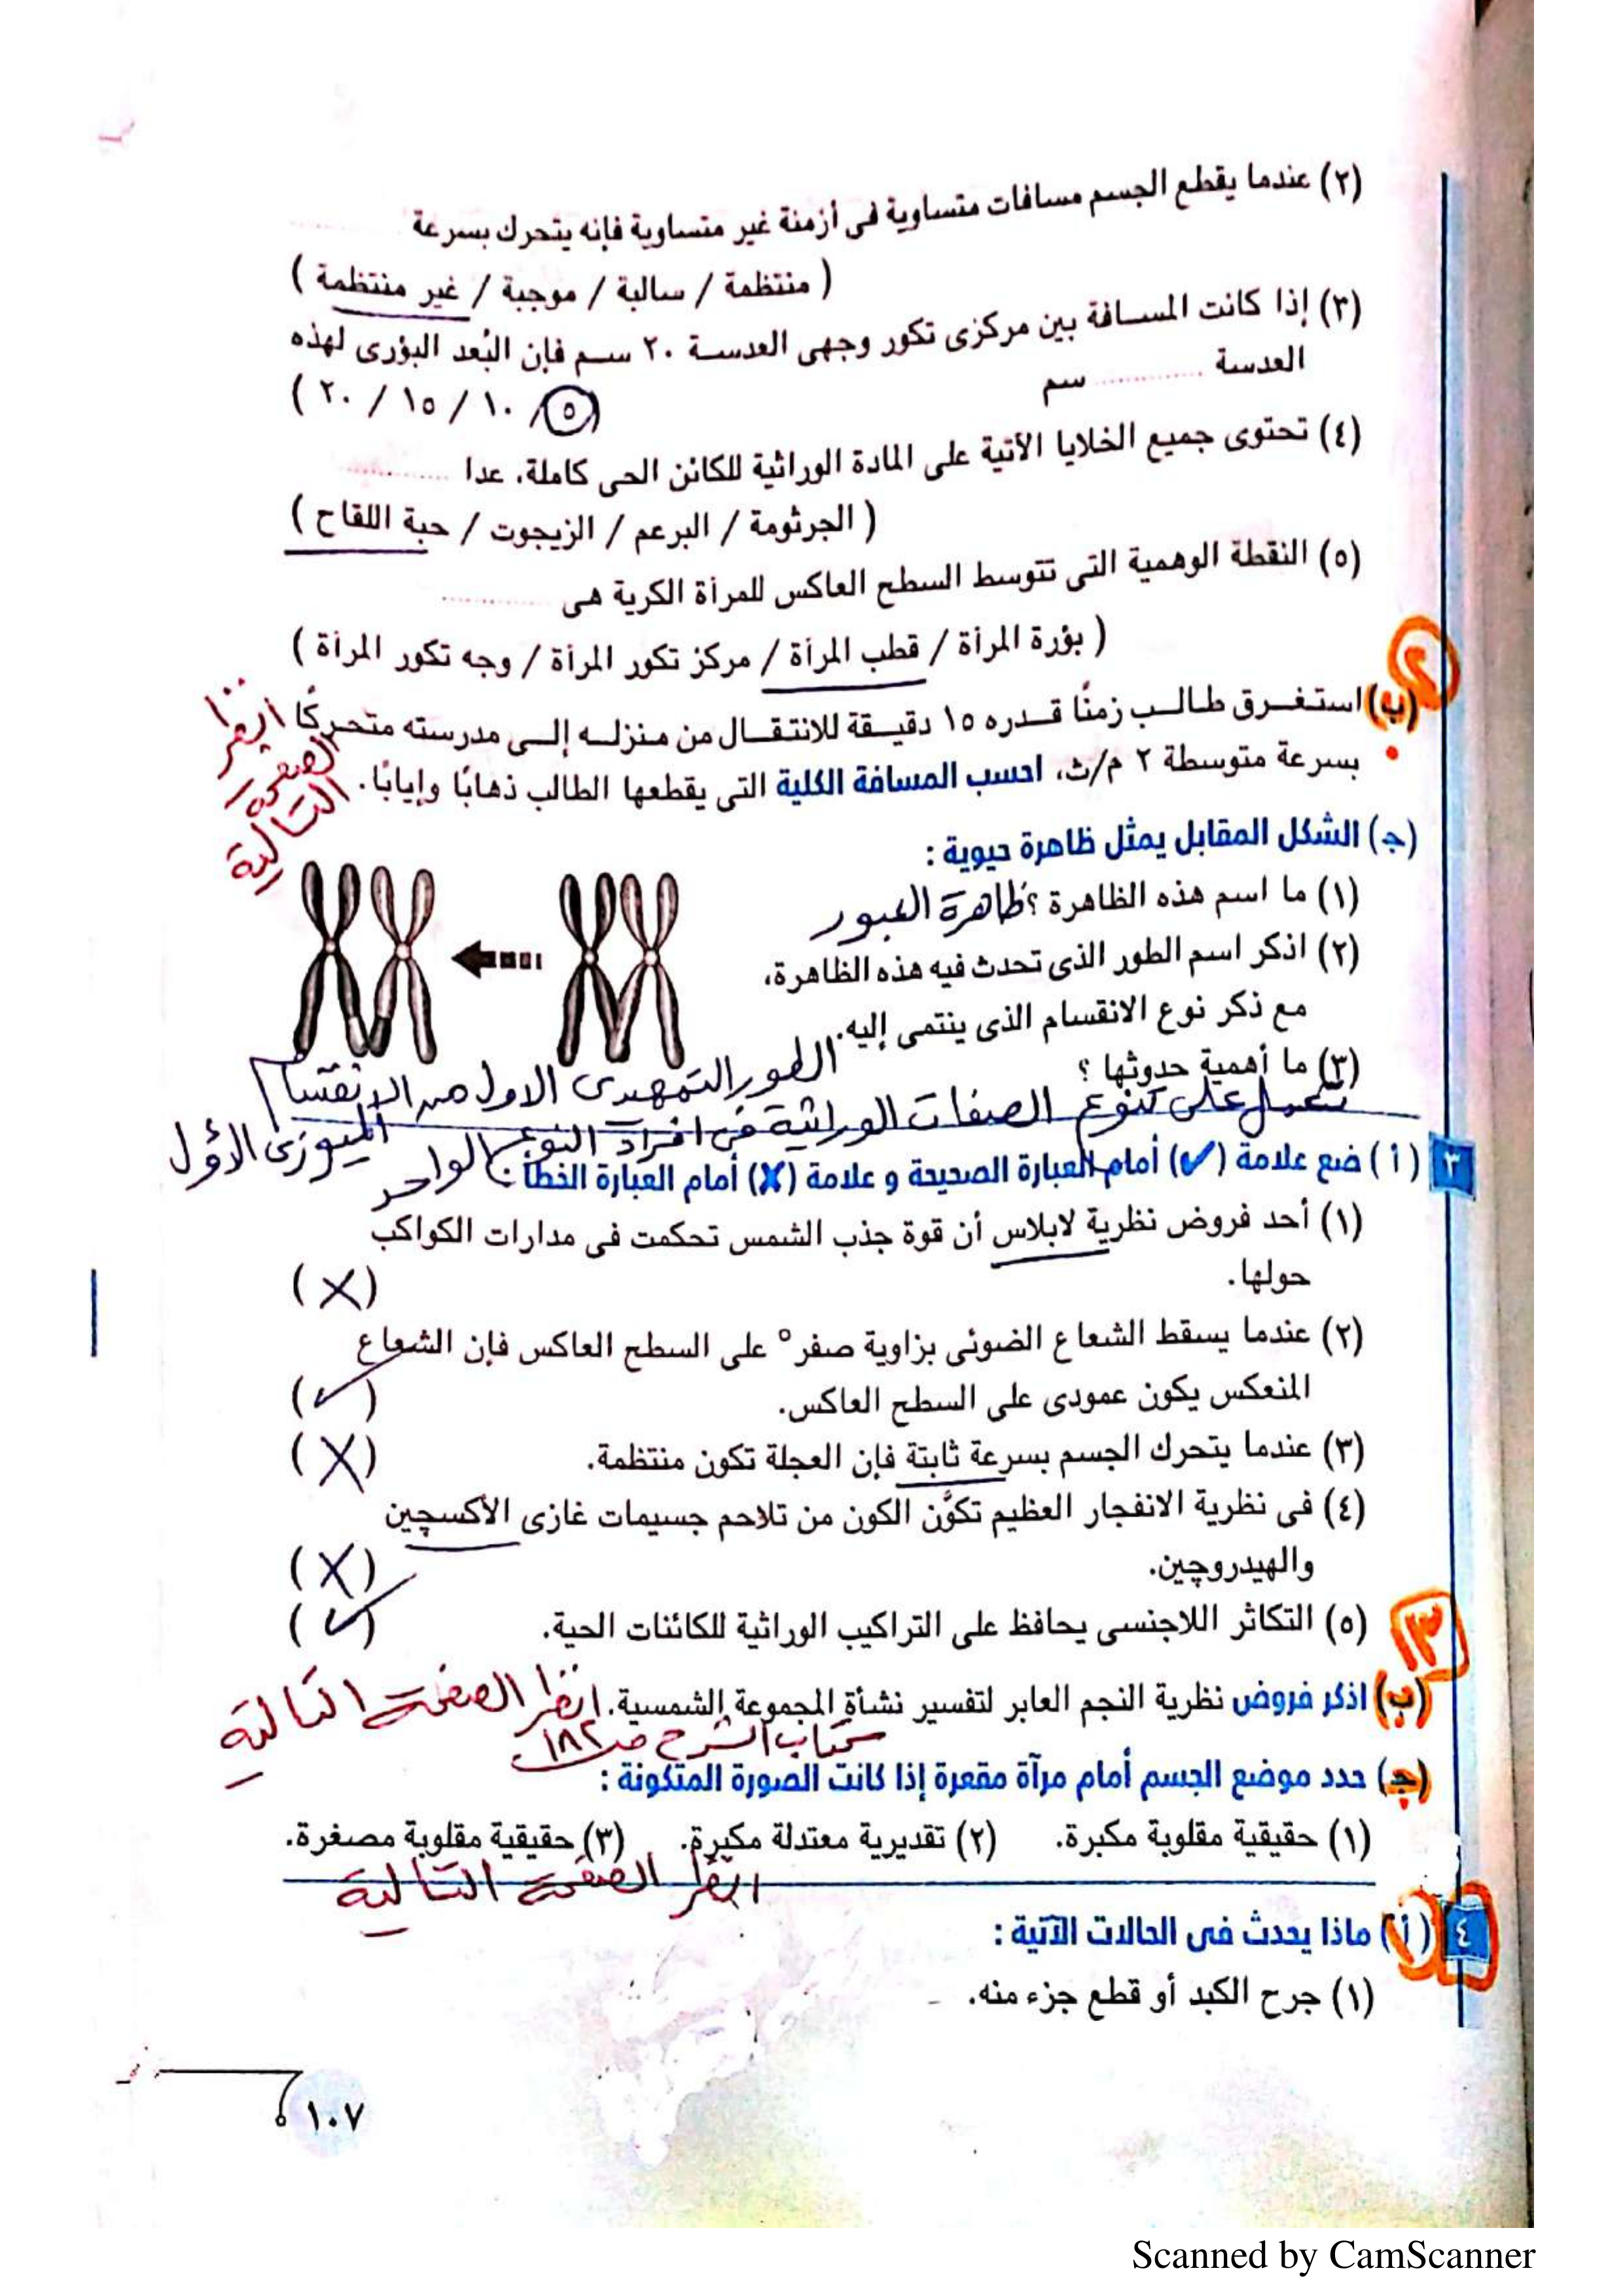 (٢) عندما يقطع الجسم مسافات متساوية فى أزمنة غير متساوية فإنه يتحرك بسرعة ............
( منتظمة / سالبة / موجبة / غير منتظمة )
(٣) إذا كانت المسافة بين مركزى تكور وجهى العدسة ٢٠ سم فإن البُعد البؤرى لهذه
العدسة ............ سم
( ٥ / ١٠ / ١٥ / ٢٠ )
(٤) تحتوى جميع الخلايا الآتية على المادة الوراثية للكائن الحى كاملة، عدا ............
( الجرثومة / البرعم / الزيجوت / حبة اللقاح )
(٥) النقطة الوهمية التى تتوسط السطح العاكس للمرآة الكرية هى ............
( بؤرة المرآة / قطب المرآة / مركز تكور المرآة / وجه تكور المرآة )
٢
(ب) استغرق طالب زمنًا قدره ١٥ دقيقة للانتقال من منزله إلى مدرسته متحركًا
بسرعة متوسطة ٢ م/ث، احسب المسافة الكلية التى يقطعها الطالب ذهابًا وإيابًا.
انظر
الصفحة
التالية
(ج) الشكل المقابل يمثل ظاهرة حيوية :
(١) ما اسم هذه الظاهرة ؟ ظاهرة العبور
(٢) اذكر اسم الطور الذى تحدث فيه هذه الظاهرة،
مع ذكر نوع الانقسام الذى ينتمى إليه.
الطور التمهيدى الاول من الانقسام
الميوزى الأول
(٣) ما أهمية حدوثها ؟
تعمل على تنوع الصفات الوراثية فى افراد النوع الواحد
٣ ( أ ) ضع علامة (✓) أمام العبارة الصحيحة و علامة (✗) أمام العبارة الخطأ :
(١) أحد فروض نظرية لابلاس أن قوة جذب الشمس تحكمت فى مدارات الكواكب
حولها. (✗)
(٢) عندما يسقط الشعاع الضوئى بزاوية صفر° على السطح العاكس فإن الشعاع
المنعكس يكون عمودى على السطح العاكس. (✓)
(٣) عندما يتحرك الجسم بسرعة ثابتة فإن العجلة تكون منتظمة. (✗)
(٤) فى نظرية الانفجار العظيم تكوَّن الكون من تلاحم جسيمات غازى الأكسچين
والهيدروچين. (✗)
(٥) التكاثر اللاجنسى يحافظ على التراكيب الوراثية للكائنات الحية. (✓)
٣
(ب) اذكر فروض نظرية النجم العابر لتفسير نشأة المجموعة الشمسية. انظر الصفحة التالية
كتاب الشرح صـ ١٨٢
(ج) حدد موضع الجسم أمام مرآة مقعرة إذا كانت الصورة المتكونة :
(١) حقيقية مقلوبة مكبرة. (٢) تقديرية معتدلة مكبرة. (٣) حقيقية مقلوبة مصغرة.
انظر الصفحة التالية
٤ ( أ ) ماذا يحدث فى الحالات الآتية :
(١) جرح الكبد أو قطع جزء منه.
١٠٧
Scanned by CamScanner